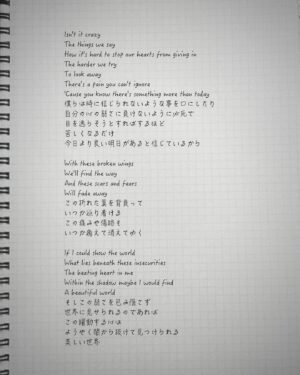 Isn't it crazy
The things we say
How it's hard to stop our hearts from giving in
The harder we try
To look away
There's a pain you can't ignore
'Cause you know there's something more than today
僕らは時に信じられないような事を口にしたり
自分の心の弱さに負けないように必死で
目を逸らそうとすればするほど
苦しくなるだけ
今日より良い明日があると信じているから
With these broken wings
We'll find the way
And these scars and fears
Will fade away
この折れた翼を背負って
いつか辿り着ける
この痛みや傷跡も
いつか癒えて消えてゆく
If I could show the world
What lies beneath these insecurities
The beating heart in me
Within the shadow maybe I would find
A beautiful world
もしこの弱さを包み隠さず
世界に見せられるのであれば
この躍動する心は
ようやく闇から抜けて見つけられる
美しい世界